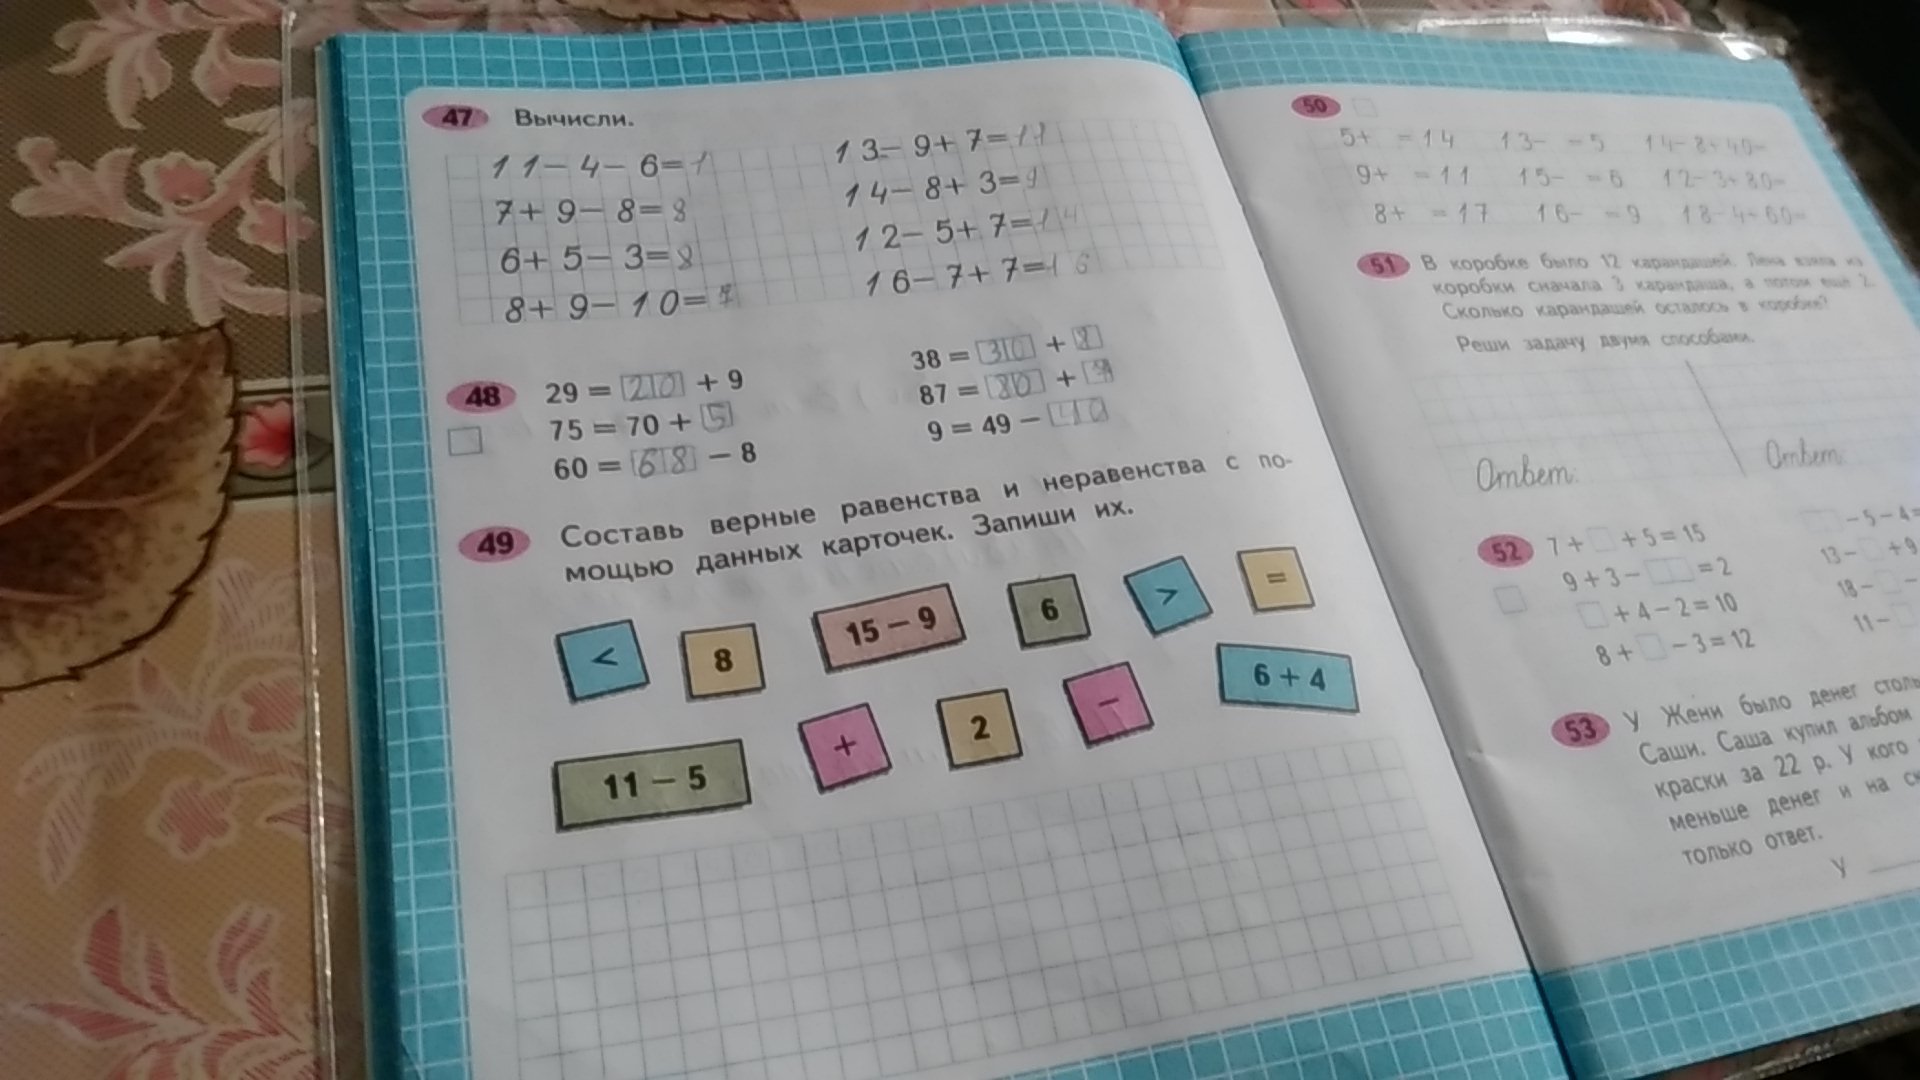 47 Вычисли.
11-4-6=1
7+9-8=8
6+5-3=8
8+9-10=7
13-9+7=11
14-8+3=9
12-5+7=14
16-7+7=16
48 29 = 20 + 9
75 = 70 + 5
60 = 68 - 8
38 = 30 + 8
87 = 80 + 7
9 = 49 - 40
49 Составь верные равенства и неравенства с по-
мощью данных карточек. Запиши их.
< 8 15-9 6 > =
11-5 + 2 - 6+4
50
5+ =14 13- =5 14-8+40=
9+ =11 15- =6 12-3+80=
8+ =17 16- =9 18-4+60=
51 В коробке было 12 карандашей. Лена взяла из
коробки сначала 3 карандаша, а потом ещё 2.
Сколько карандашей осталось в коробке?
Реши задачу двумя способами.
Ответ: Ответ:
52 7+ □ +5=15
9+3- □□ =2
□ +4-2=10
8+ □ -3=12
□ -5-4=
13- □ +9
18- □ -
11- □
53 У Жени было денег
Саши. Саша купил альбом
краски за 22 р. У кого
меньше денег и на
только ответ.
У